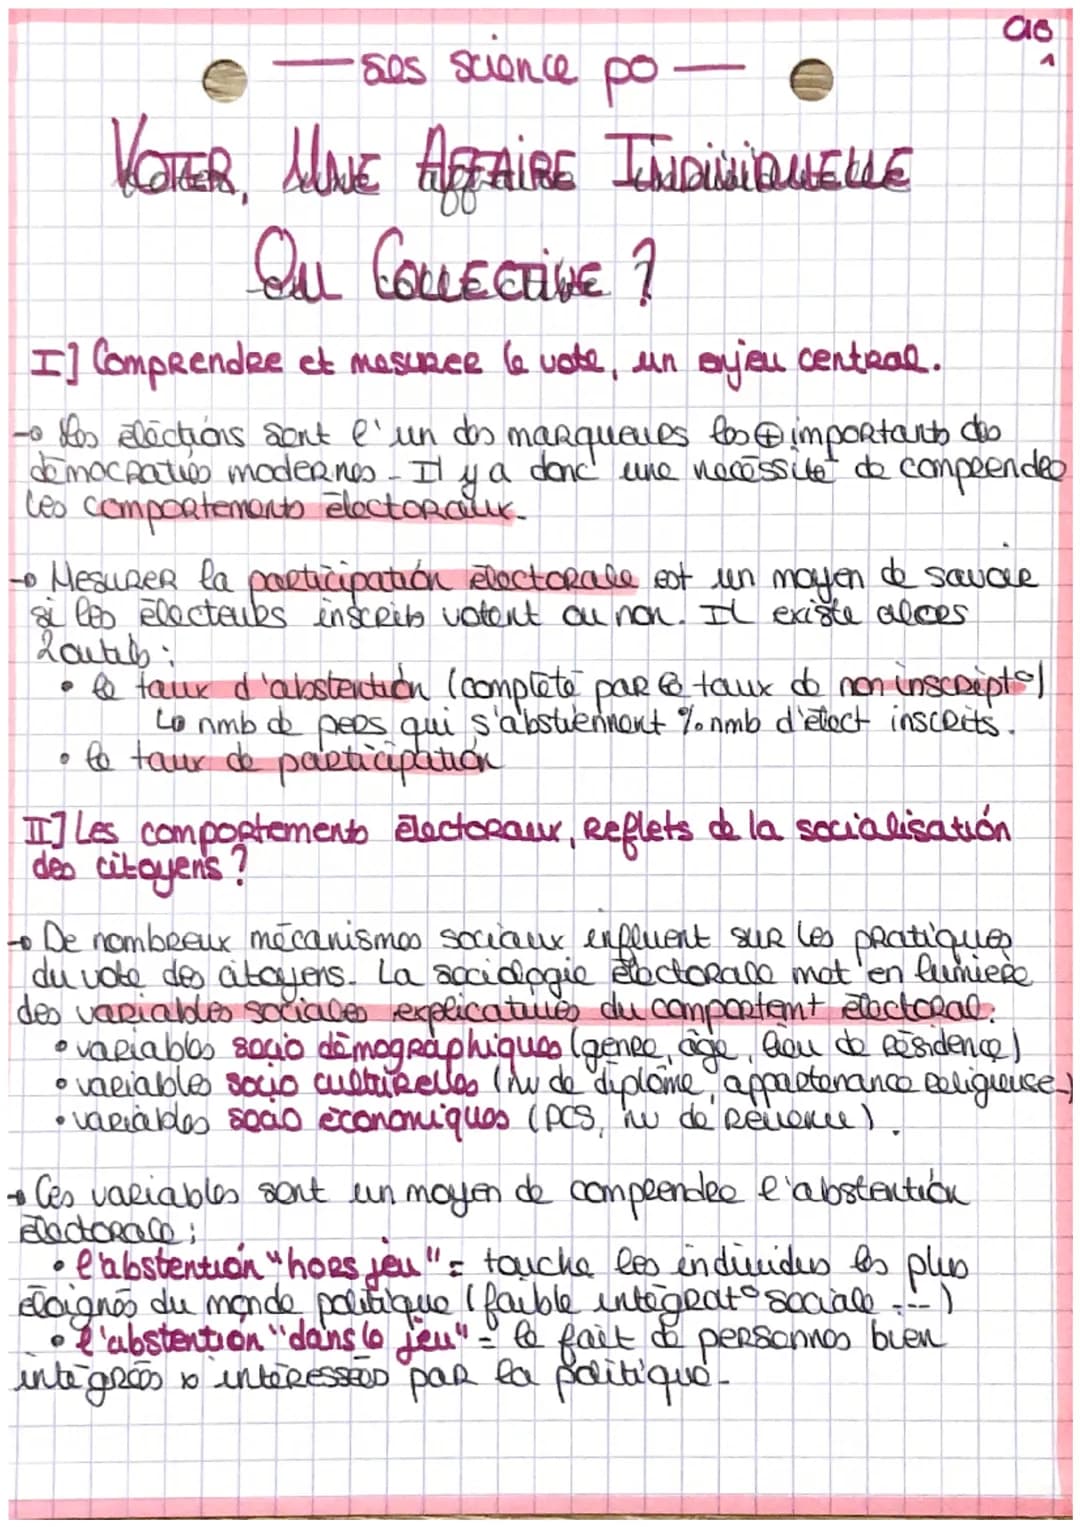 C18
1
— ses science po —
VOTER, UNE AFFAIRE INDIVIDUELLE
OU COLLECTIVE ?
I] Comprendre et mesurer le vote, un enjeu central.
→ Les élections sont l'un des marqueurs les ⊕ importants des
démocraties modernes. Il y a donc une nécessité de comprendre
les comportements électoraux.
→ Mesurer la participation électorale est un moyen de savoir
si les électeurs inscrits votent ou non. Il existe alors
2 outils :
• le taux d'abstention (complété par le taux de non inscript°)
↳ nmb de pers qui s'abstiennent % nmb d'élect inscrits.
• le taux de participation
II] Les comportements électoraux, reflets de la socialisation
des citoyens ?
→ De nombreux mécanismes sociaux influent sur les pratiques
du vote des citoyens. La sociologie électorale met en lumière
des variables sociales explicatives du comportent électoral :
• variables socio démographiques (genre, âge, lieu de résidence)
• variables socio culturelles (nv de diplôme, appartenance religieuse)
• variables socio économiques (PCS, nv de revenu).
→ Ces variables sont un moyen de comprendre l'abstention
électorale :
• l'abstention "hors jeu" = touche les individus les plus
éloignés du monde politique (faible intégrat° sociale ...)
• l'abstention "dans le jeu" = le fait de personnes bien
intégrées & intéressées par la politique.